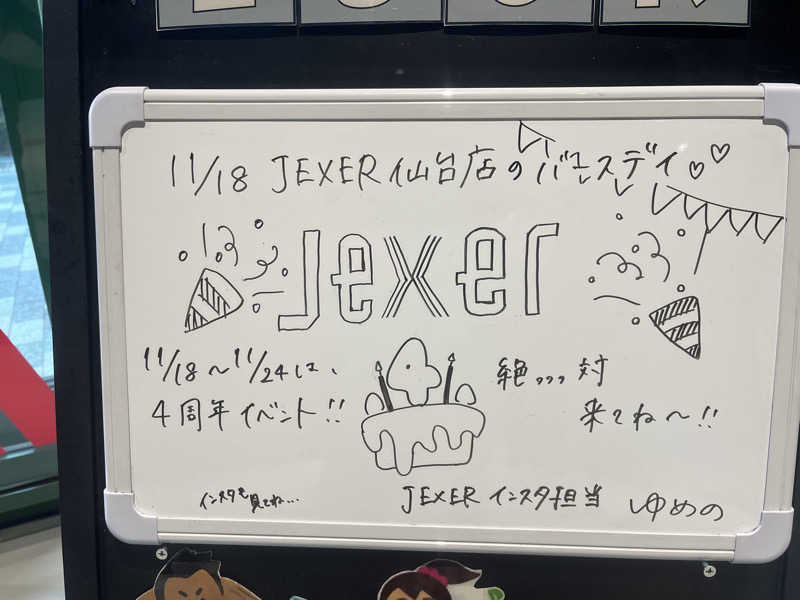 11/18 JEXER 仙台店のバースデイ♡♡
Jexer
11/18～11/24は、
4周年イベント!!
4
絶,,,,対
来てね～!!
インスタも見てね...
JEXER インスタ担当 ゆめの